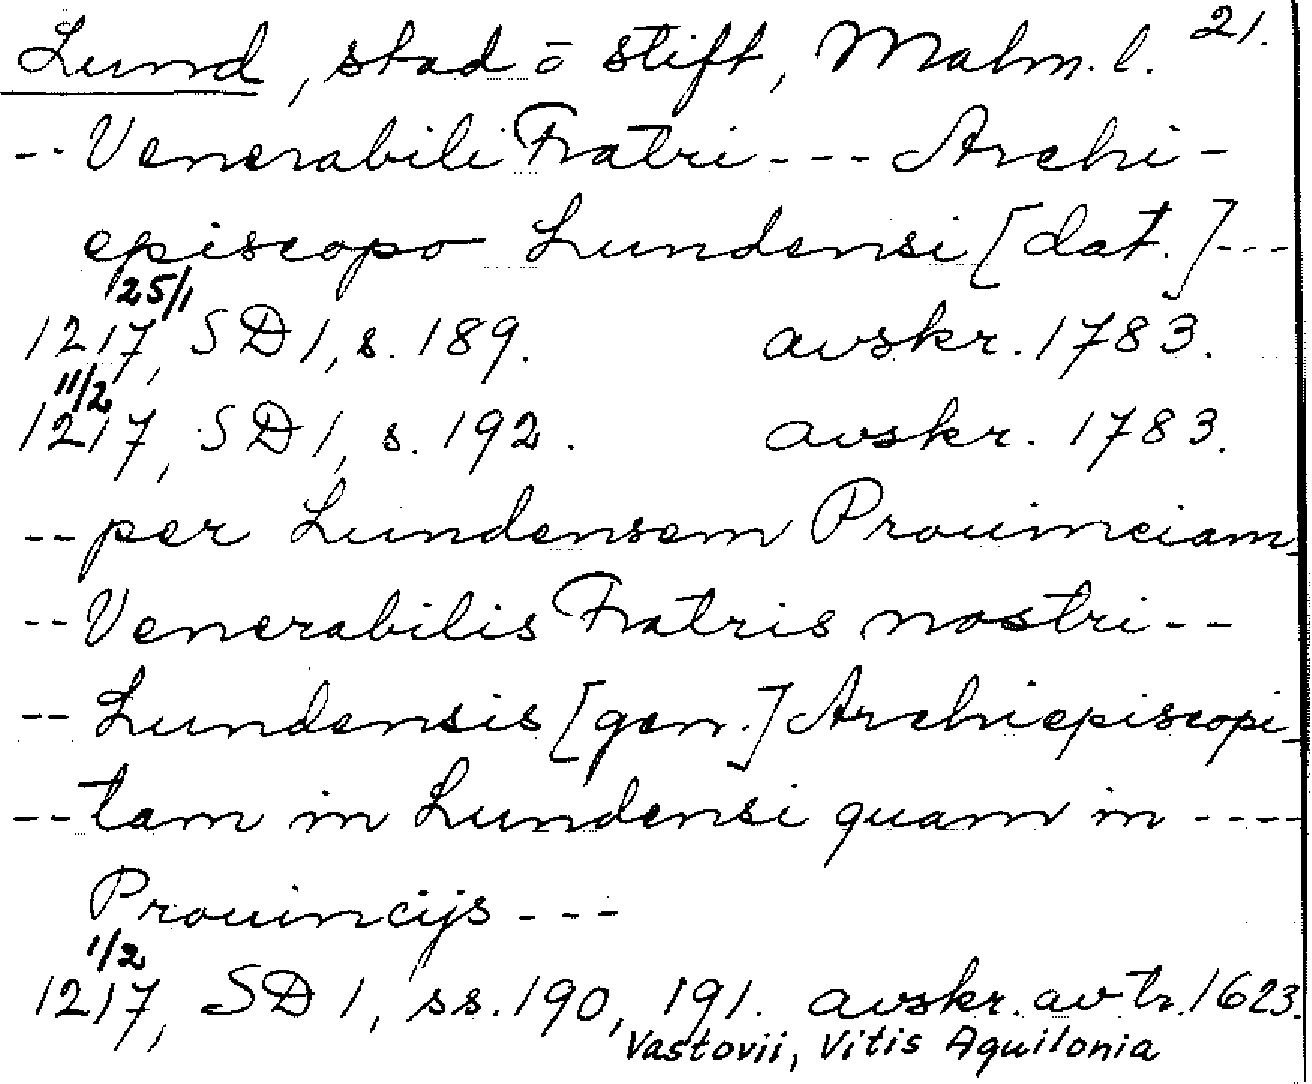 Lund, stad o stift, Malm. l. 21.
-- Venerabili Fratri --- Archi-
episcopo Lundensi [dat.] ---
25/1
1217, SD 1, s. 189. avskr. 1783.
11/2
1217, SD 1, s. 192. avskr. 1783.
-- per Lundensem Prouinciam
-- Venerabilis Fratris nostri --
-- Lundensis [gen.] Archiepiscopi
-- tam in Lundensi quam in ----
Prouincijs ---
1/2
1217, SD 1, ss. 190, 191. avskr. av tr. 1623.
Vastovii, Vitis Aquilonia